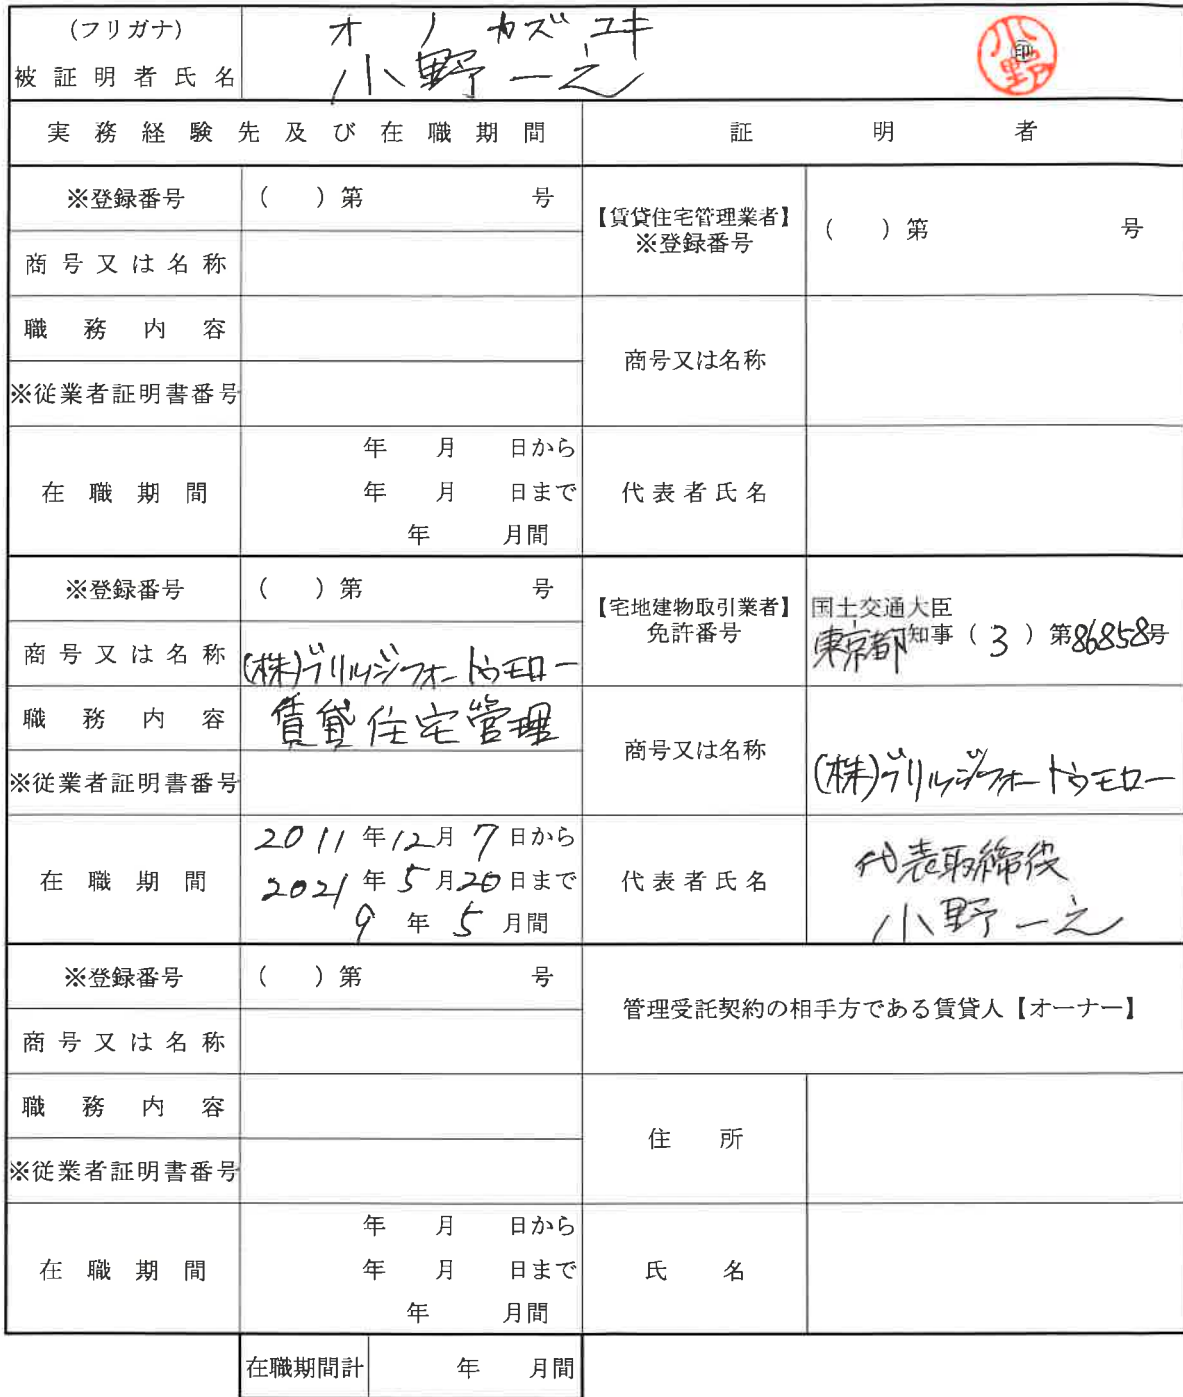 (フリガナ) オノ カズユキ
被証明者氏名 小野一之 印 小野
実務経験先及び在職期間 証明者
※登録番号 ( ) 第 号
【賃貸住宅管理業者】
※登録番号 ( ) 第 号
商号又は名称
職務内容
商号又は名称
※従業者証明書番号
在職期間
年 月 日から
年 月 日まで
年 月間
代表者氏名
※登録番号 ( ) 第 号
【宅地建物取引業者】
免許番号
国土交通大臣
東京都知事 ( 3 ) 第86858号
商号又は名称 (株)ブリッジフォートゥモロー
職務内容 賃貸住宅管理
商号又は名称 (株)ブリッジフォートゥモロー
※従業者証明書番号
在職期間
2011年12月7日から
2021年5月20日まで
9年5月間
代表者氏名
代表取締役
小野一之
※登録番号 ( ) 第 号
管理受託契約の相手方である賃貸人【オーナー】
商号又は名称
職務内容
住所
※従業者証明書番号
在職期間
年 月 日から
年 月 日まで
年 月間
氏名
在職期間計 年 月間